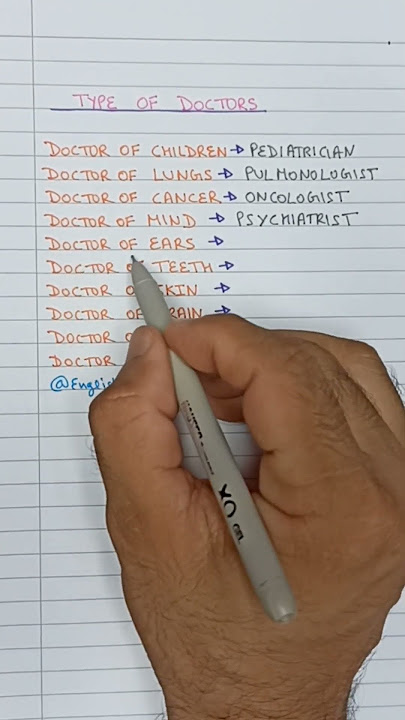 TYPE OF DOCTORS
DOCTOR OF CHILDREN → PEDIATRICIAN
DOCTOR OF LUNGS → PULMONOLOGIST
DOCTOR OF CANCER → ONCOLOGIST
DOCTOR OF MIND → PSYCHIATRIST
DOCTOR OF EARS →
DOCTOR OF TEETH →
DOCTOR OF SKIN →
DOCTOR OF BRAIN →
DOCTOR
DOCTOR
XO GEL